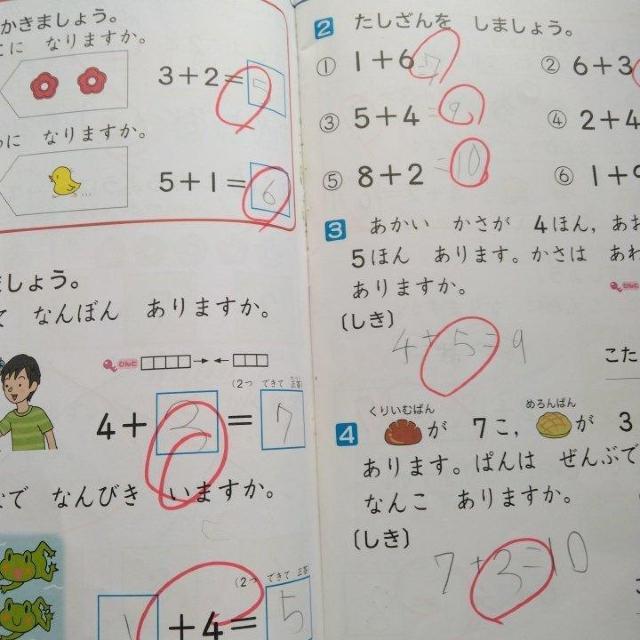 かきましょう。
に なりますか。
3+2=5
に なりますか。
5+1=6
ましょう。
て なんぼん ありますか。
ヒント
(2つ できて 正答
4+3=7
で なんびき いますか。
(2つ できて 正答
1+4=5
2 たしざんを しましょう。
① 1+6 7
② 6+3
③ 5+4=9
④ 2+4
⑤ 8+2=10
⑥ 1+9
3 あかい かさが 4ほん, あお
5ほん あります。かさは あわ
ありますか。
ヒント
(しき) 4+5=9
こた
4 くりいむぱん が 7こ, めろんぱん が 3
あります。ぱんは ぜんぶで
なんこ ありますか。
(しき)
7+3=10